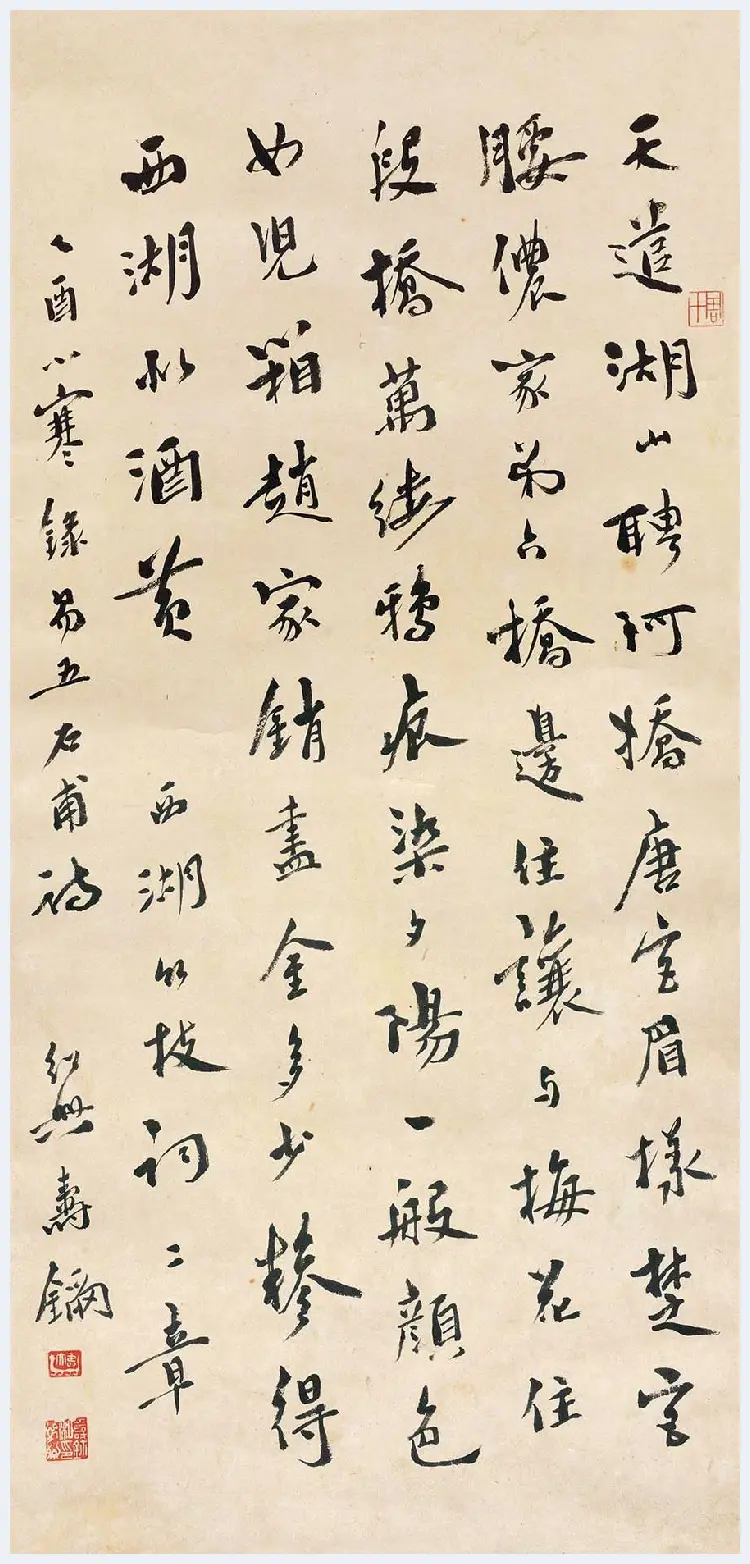 天造湖山聘阿嬌唐宮眉樣楚宮
腰儂家第六橋邊住讓與梅花住
段橋萬縷鴉痕染夕陽一般顏色
女兒箱趙家銷盡金多少得
西湖似酒黃 西湖竹枝詞二章
乙酉小寒錄易五石甫詩 紹興壽鑈